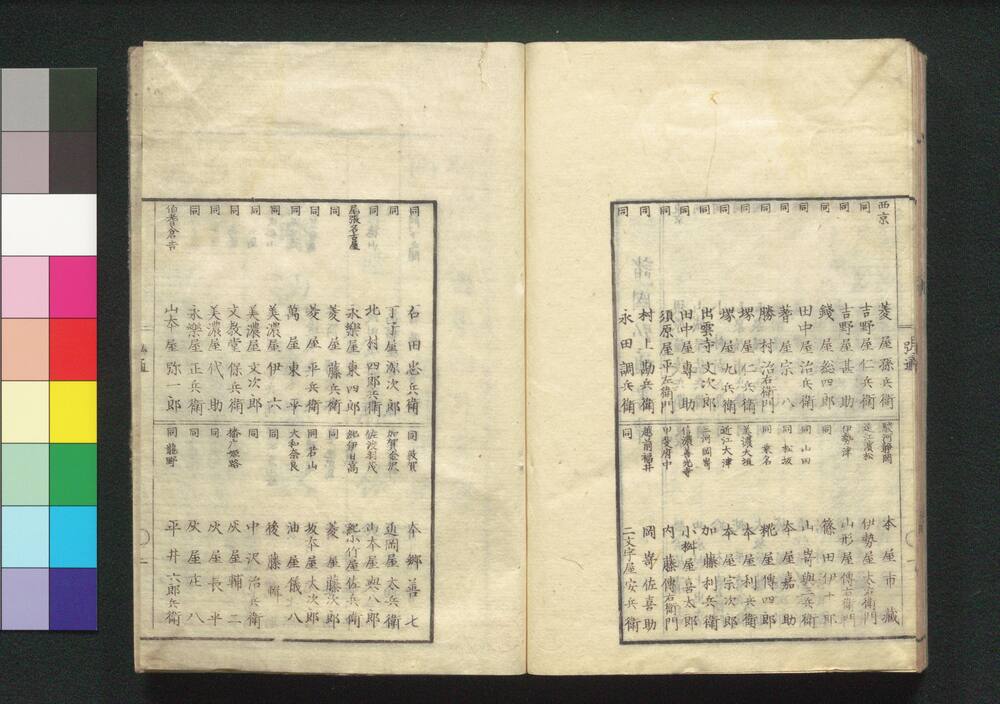 西京 菱屋孫兵衛
同 吉野屋仁兵衛
同 吉野屋甚助
同 錢屋惣四郎
同 田中屋治兵衛
同 著屋宗八
同 勝村治右衛門
同 堺屋仁兵衛
同 堺屋九兵衛
同 出雲寺文次郎
同 田中屋專助
同 須原屋平左衛門
同 村上勘兵衛
同 永田調兵衛
駿河靜岡 本屋市藏
遠江濱松 伊勢屋太右衛門
伊勢津 山形屋傳右衛門
同 篠田伊十郎
同山田 山嵜與三兵衛
同松坂 本屋嘉助
同桒名 糀屋傳四郎
美濃大垣 本屋利兵衛
近江大津 本屋宗次郎
三河岡嵜 加藤利兵衛
信濃善光寺 小桝屋喜太郎
甲斐府中 内藤傳右衛門
越前福井 岡嵜佐喜助
同 二文字屋安兵衛
同 石田忠兵衛
同 丁子屋源次郎
同 北村四郎兵衛
尾張名古屋 永樂屋東四郎
同 菱屋藤兵衛
同 菱屋平兵衛
同 萬屋東平
同 美濃屋伊六
同 美濃屋文次郎
同 文教堂保兵衛
同 美濃屋代助
同 永樂屋正兵衛
伯耆倉吉 山本屋弥一郎
同敦賀 本郷善七
加賀金沢 近岡屋太兵衛
佐渡羽茂 山本屋與八郎
紀伊日高 小竹屋佐兵衛
同 菱屋藤次郎
同若山 坂本屋大次郎
大和奈良 油屋儀八
同 後藤
同 中沢治兵衛
播广姫路 灰屋輔二
同 灰屋長平
同 灰屋正八
同龍野 平井六郎兵衛